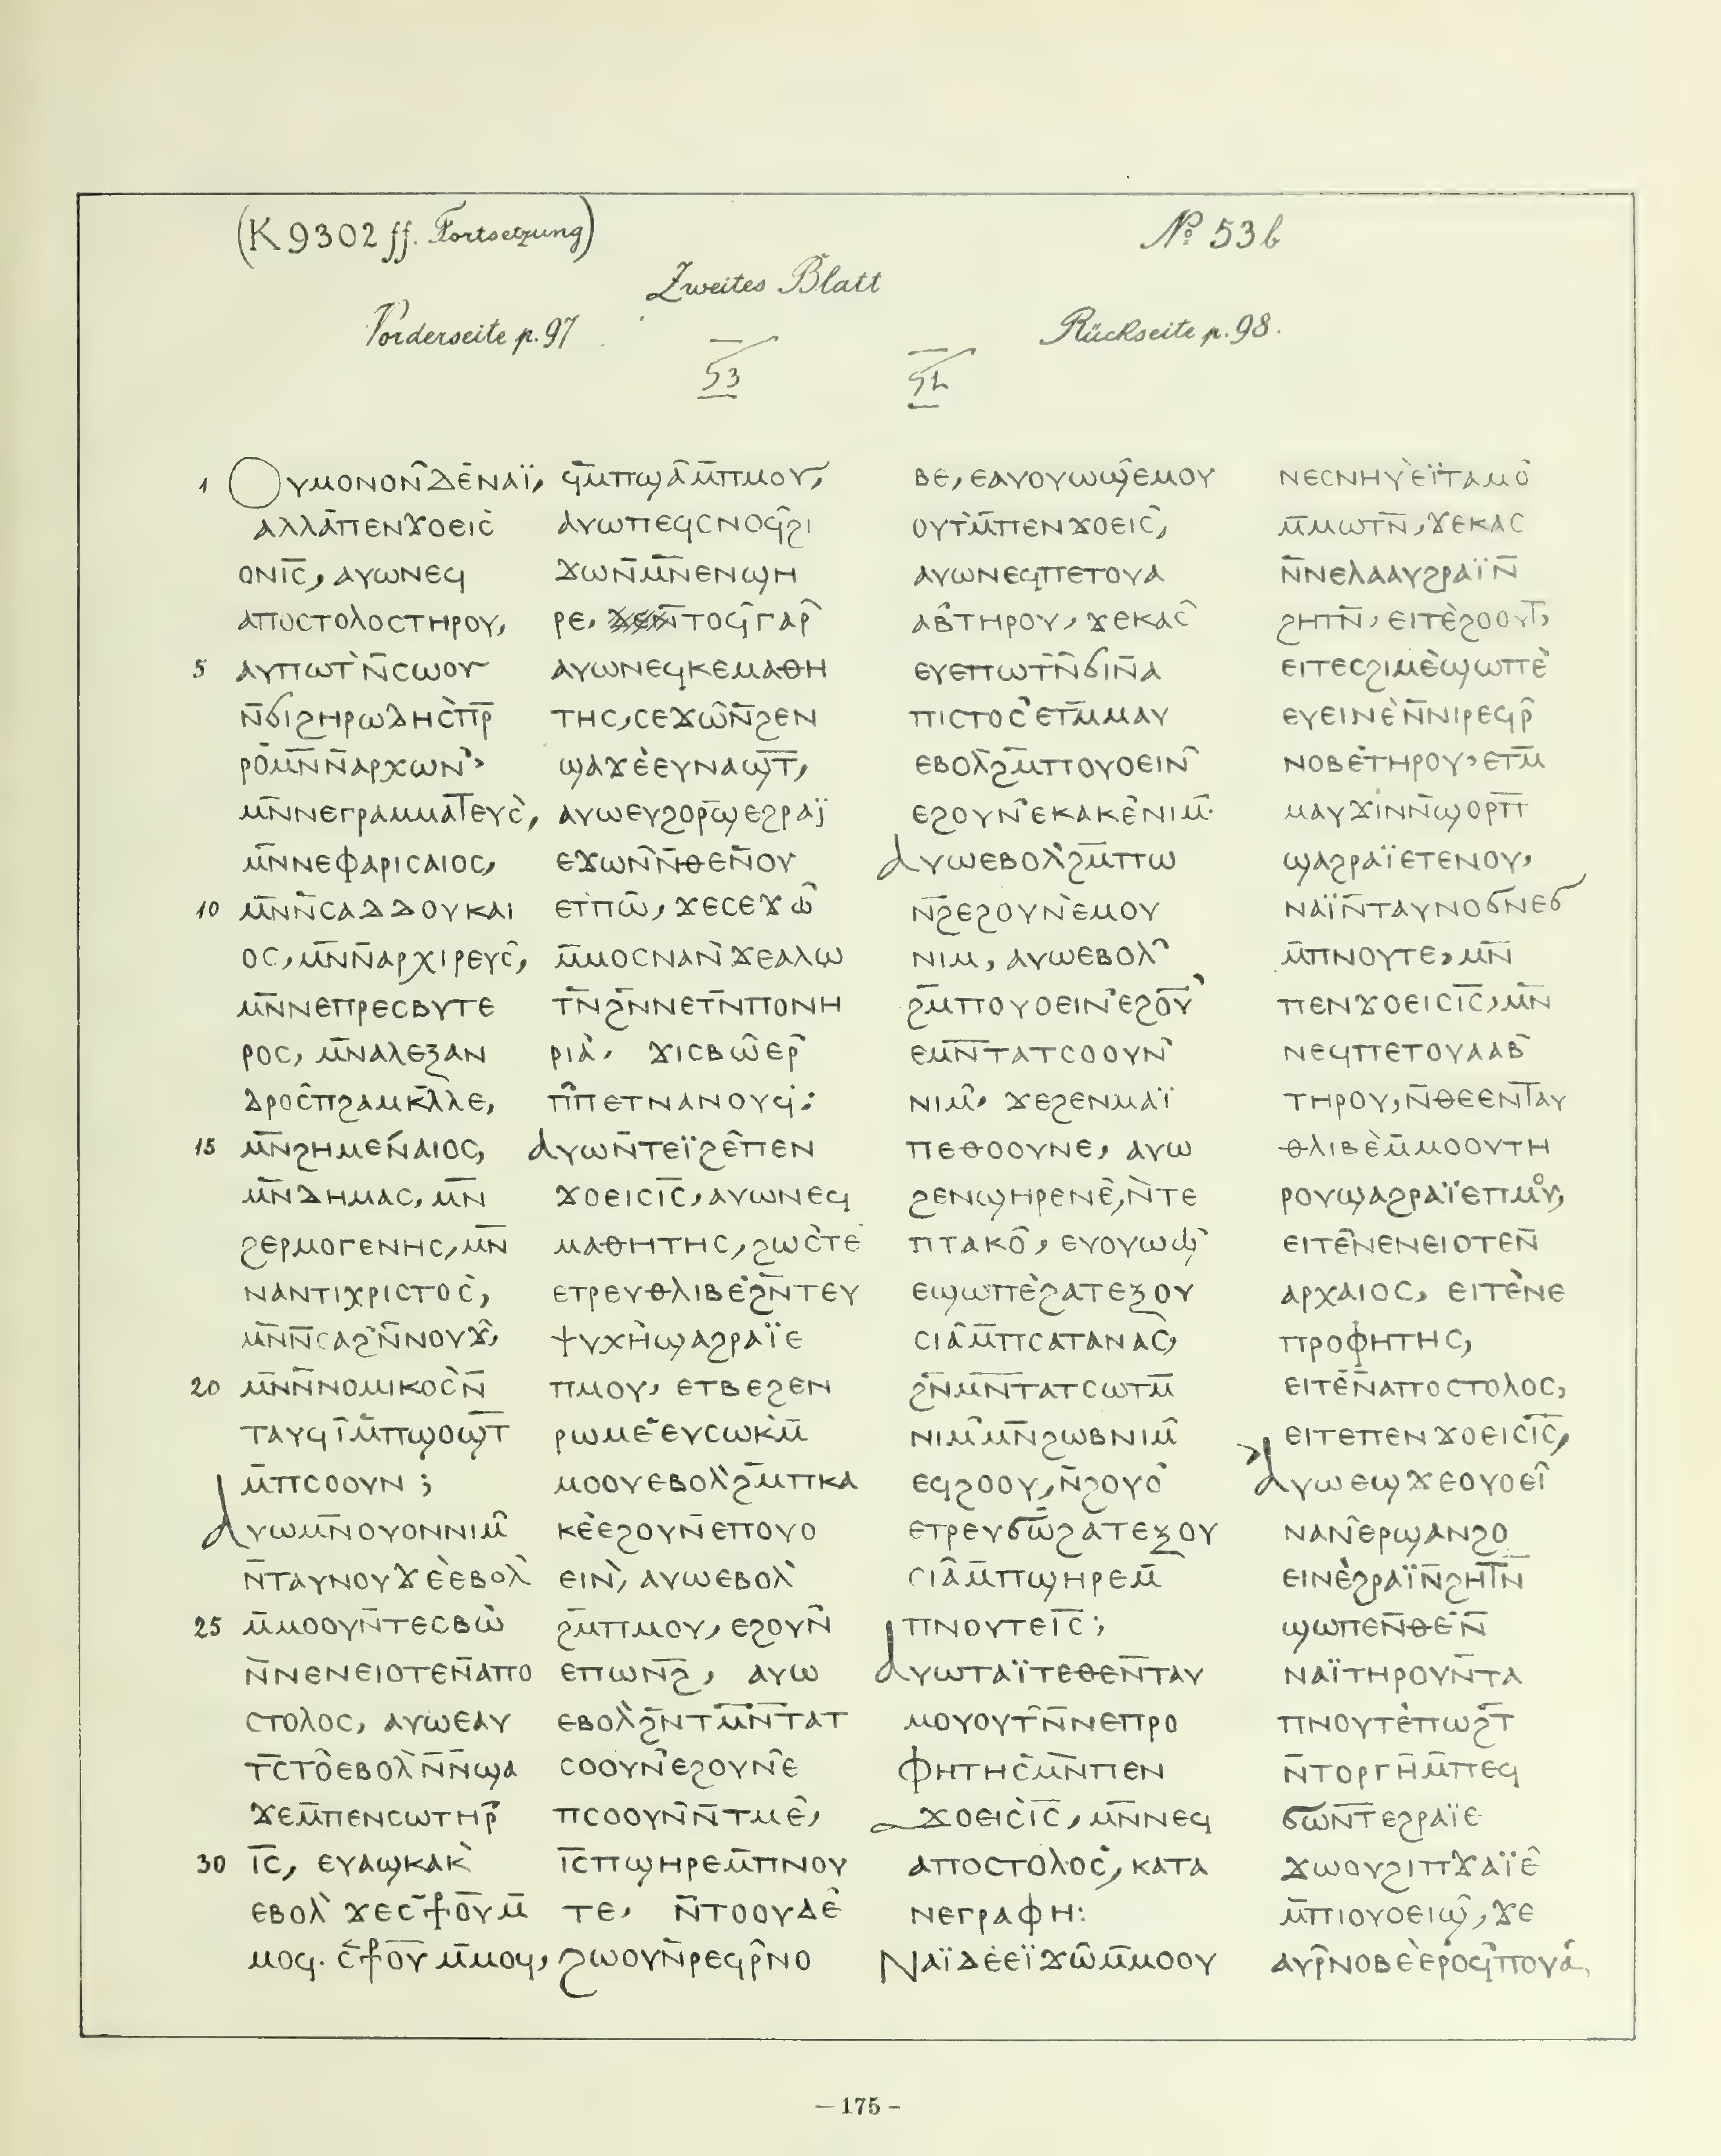 (K 9302 ff. Fortsetzung)
№ 53b
Zweites Blatt
Vorderseite p. 97
Rückseite p. 98.
1 ⲞⲩⲙⲟⲛⲟⲛⲆⲉ̄ⲛⲁⲓ̈,
ⲁⲗⲗⲁ̄ⲡⲉⲛϫⲟⲉⲓⲥ̀
ⲟⲛⲓ̅ⲥ̅, ⲁⲩⲱⲛⲉϥ
ⲁⲡⲟⲥⲧⲟⲗⲟⲥⲧⲏⲣⲟⲩ,
5 ⲁⲩⲡⲱⲧ̀ⲛ̄ⲥⲱⲟⲩ
ⲛ̄ϭⲓϩⲏⲣⲱⲇⲏⲥ̀ⲡ̅ⲣ̅
ⲣⲟ̄ⲙⲛ̄ⲛ̄ⲁⲣⲭⲱⲛ̀
ⲙⲛ̄ⲛⲉⲅⲣⲁⲙⲙⲁⲧⲉⲩⲥ̀,
ⲙⲛ̄ⲛⲉⲫⲁⲣⲓⲥⲁⲓⲟⲥ,
10 ⲙⲛ̄ⲛ̄ⲥⲁⲇⲇⲟⲩⲕⲁⲓ
ⲟⲥ, ⲙⲛ̄ⲛ̄ⲁⲣⲭⲓⲣⲉⲩⲥ̂,
ⲙⲛ̄ⲛⲉⲡⲣⲉⲥⲃⲩⲧⲉ
ⲣⲟⲥ, ⲙⲛ̄ⲁⲗⲉⲝⲁⲛ
ⲇⲣⲟⲥ̂ⲡϩⲁⲙⲕⲗ̄ⲗⲉ,
15 ⲙⲛ̄ϩⲩⲙⲉⲛ̄ⲁⲓⲟⲥ,
ⲙⲛ̄ⲇⲏⲙⲁⲥ, ⲙⲛ̄
ϩⲉⲣⲙⲟⲅⲉⲛⲏⲥ, ⲙⲛ̄
ⲛⲁⲛⲧⲓⲭⲣⲓⲥⲧⲟⲥ̀,
ⲙⲛ̄ⲛ̄ⲥⲁϩ̀ⲛ̄ⲛⲟⲩϫ̂,
20 ⲙⲛ̄ⲛ̄ⲛⲟⲙⲓⲕⲟⲥ̀ⲛ̄
ⲧⲁⲩϥⲓ̂ⲙ̄ⲡϣⲟϣ̅ⲧ̅
ⲙ̄ⲡⲥⲟⲟⲩⲛ ;
ⲁⲩⲱⲙⲛ̄ⲟⲩⲟⲛⲛⲓⲙ̂
ⲛ̄ⲧⲁⲩⲛⲟⲩϫⲉ̀ⲉⲃⲟⲗ̀
25 ⲙ̄ⲙⲟⲟⲩⲛ̄ⲧⲉⲥⲃⲱ̀
ⲛ̄ⲛⲉⲛⲉⲓⲟⲧⲉⲛ̄ⲁⲡⲟ
ⲥⲧⲟⲗⲟⲥ, ⲁⲩⲱⲉⲁⲩ
ⲧ̅ⲥ̅ⲧⲟ̂ⲉⲃⲟⲗ̀ⲛ̄ⲛ̄ϣⲁ
ϫⲉⲙ̄ⲡⲉⲛⲥⲱⲧⲏⲣ̂
30 ⲓ̅ⲥ̅, ⲉⲩⲁϣⲕⲁⲕ̀
ⲉⲃⲟⲗ̀ ϫⲉⲥϯⲟⲩⲙ̄
ⲙⲟϥ. ⲥϯⲟⲩ ⲙ̄ⲙⲟϥ,
ϥ̂ⲙ̄ⲡϣⲁ̂ⲙ̄ⲡⲙⲟⲩ,
ⲁⲩⲱⲡⲉϥⲥⲛⲟϥ̂ϩⲓ
ϫⲱⲛ̄ⲙⲛ̄ⲛⲉⲛϣⲏ
ⲣⲉ, ⲛ̄ⲧⲟϥ̂ⲅⲁⲣ̂
ⲁⲩⲱⲛⲉϥⲕⲉⲙⲁⲑⲏ
ⲧⲏⲥ, ⲥⲉϫⲱ̂ⲛ̄ϩⲉⲛ
ϣⲁϫⲉ̀ⲉⲩⲛⲁϣ̅ⲧ̅,
ⲁⲩⲱⲉⲩϩⲟⲣϣ̄ⲉϩⲣⲁⲓ̈
ⲉϫⲱⲛ̂ⲛ̄ⲑⲉⲛ̄ⲟⲩ
ⲉⲧⲡⲱ̂, ϫⲉⲥⲉϫⲱ̂
ⲙ̄ⲙⲟⲥⲛⲁⲛ̀ϫⲉⲁⲗⲱ
ⲧⲛ̄ϩⲛ̄ⲛⲉⲧⲛ̄ⲡⲟⲛⲏ
ⲣⲓⲁ̀. ϫⲓⲥⲃⲱ̂ⲉⲣ̂
ⲡ̂ⲡⲉⲧⲛⲁⲛⲟⲩϥ:
ⲁⲩⲱⲛ̄ⲧⲉⲓ̈ϩⲉ̂ⲡⲉⲛ
ϫⲟⲉⲓⲥⲓ̅ⲥ̅, ⲁⲩⲱⲛⲉϥ
ⲙⲁⲑⲏⲧⲏⲥ, ϩⲱⲥ̀ⲧⲉ
ⲉⲧⲣⲉⲩⲑⲗⲓⲃⲉ̀ϩⲛ̄ⲧⲉⲩ
ⲯⲩⲭⲏ̀ϣⲁϩⲣⲁⲓ̈ⲉ
ⲡⲙⲟⲩ, ⲉⲧⲃⲉϩⲉⲛ
ⲣⲱⲙⲉ̀ⲉⲩⲥⲱⲕ̀ⲙ̄
ⲙⲟⲟⲩⲉⲃⲟⲗ̀ϩⲙ̄ⲡⲕⲁ
ⲕⲉ̀ⲉϩⲟⲩⲛ̄ⲉⲡⲟⲩⲟ
ⲉⲓⲛ̀, ⲁⲩⲱⲉⲃⲟⲗ̀
ϩⲙ̄ⲡⲙⲟⲩ, ⲉϩⲟⲩⲛ̂
ⲉⲡⲱⲛ̅ϩ̅, ⲁⲩⲱ
ⲉⲃⲟⲗ̀ϩⲛ̄ⲧⲙⲛ̄ⲧⲁⲧ
ⲥⲟⲟⲩⲛ̂ⲉϩⲟⲩⲛ̂ⲉ
ⲡⲥⲟⲟⲩⲛ̂ⲛ̄ⲧⲙⲉ̂,
ⲓ̅ⲥ̅ⲡϣⲏⲣⲉⲙ̄ⲡⲛⲟⲩ
ⲧⲉ, ⲛ̄ⲧⲟⲟⲩⲇⲉ̂
ϩⲱⲟⲩⲛ̄ⲣⲉϥⲣ̂ⲛⲟ
ⲃⲉ, ⲉⲁⲩⲟⲩⲱϣ̂ⲉⲙⲟⲩ
ⲟⲩⲧ̀ⲙ̄ⲡⲉⲛϫⲟⲉⲓⲥ̂,
ⲁⲩⲱⲛⲉϥⲡⲉⲧⲟⲩⲁ
ⲁⲃ̂ⲧⲏⲣⲟⲩ, ϫⲉⲕⲁⲥ̂
ⲉⲩⲉⲡⲱⲧ̀ⲛ̄ϭⲓⲛ̄ⲁ
ⲡⲓⲥⲧⲟⲥ̀ⲉⲧⲙ̄ⲙⲁⲩ
ⲉⲃⲟⲗ̀ϩⲙ̄ⲡⲟⲩⲟⲉⲓⲛ̂
ⲉϩⲟⲩⲛ̂ⲉⲕⲁⲕⲉ̀ⲛⲓⲙ̄.
ⲁⲩⲱⲉⲃⲟⲗ̀ϩⲙ̄ⲡⲱ
ⲛ̅ϩ̅ⲉϩⲟⲩⲛ̀ⲉⲙⲟⲩ
ⲛⲓⲙ, ⲁⲩⲱⲉⲃⲟⲗ̂
ϩⲙ̄ⲡⲟⲩⲟⲉⲓⲛ̀ⲉϩⲟⲩ̅
ⲉⲙⲛ̄ⲧⲁⲧⲥⲟⲟⲩⲛ̂
ⲛⲓⲙ̂, ϫⲉϩⲉⲛⲙⲁⲓ̈
ⲡⲉⲑⲟⲟⲩⲛⲉ, ⲁⲩⲱ
ϩⲉⲛϣⲏⲣⲉⲛⲉ̀, ⲛ̀ⲧⲉ
ⲡⲧⲁⲕⲟ̂, ⲉⲩⲟⲩⲱϣ̂
ⲉϣⲱⲡⲉ̀ϩⲁⲧⲉⲝⲟⲩ
ⲥⲓⲁ̂ⲙ̄ⲡⲥⲁⲧⲁⲛⲁⲥ̀,
ϩⲛ̄ⲙⲛ̄ⲧⲁⲧⲥⲱⲧⲙ̄
ⲛⲓⲙ̂ⲙⲛ̄ϩⲱⲃⲛⲓⲙ̂
ⲉϥϩⲟⲟⲩ, ⲛ̄ϩⲟⲩⲟ̂
ⲉⲧⲣⲉⲩϭⲱ̂ϩⲁⲧⲉⲝⲟⲩ
ⲥⲓⲁ̂ⲙ̄ⲡϣⲏⲣⲉⲙ̄
ⲡⲛⲟⲩⲧⲉⲓ̅ⲥ̅ ;
ⲁⲩⲱⲧⲁⲓ̈ⲧⲉⲑⲉⲛ̄ⲧⲁⲩ
ⲙⲟⲩⲟⲩⲧ̂ⲛ̄ⲛⲉⲡⲣⲟ
ⲫⲏⲧⲏⲥ̀ⲙⲛ̄ⲡⲉⲛ
ϫⲟⲉⲓⲥ̀ⲓ̅ⲥ̅, ⲙⲛ̄ⲛⲉϥ
ⲁⲡⲟⲥⲧⲟⲗⲟⲥ̀, ⲕⲁⲧⲁ
ⲛⲉⲅⲣⲁⲫⲏ:
Ⲛⲁⲓ̈ⲇⲉ̀ⲉⲓ̈ϫⲱ̂ⲙ̄ⲙⲟⲟⲩ
ⲛⲉⲥⲛⲏⲩ̀ⲉⲓ̈ⲧⲁⲙⲟ̂
ⲙ̄ⲙⲱⲧⲛ̄, ϫⲉⲕⲁⲥ
ⲛ̄ⲛⲉⲗⲁⲁⲩϩⲣⲁⲓ̈ⲛ̄
ϩⲏⲧⲛ̄, ⲉⲓⲧⲉ̀ϩⲟⲟⲩⲧ̀,
ⲉⲓⲧⲉⲥϩⲓⲙⲉ̀ϣⲱⲡⲉ̀
ⲉⲩⲉⲓⲛⲉ̀ⲛ̄ⲛⲓⲣⲉϥⲣ̂
ⲛⲟⲃⲉ̀ⲧⲏⲣⲟⲩ, ⲉⲧⲙ̄
ⲙⲁⲩϫⲓⲛⲛ̄ϣⲟⲣⲡ̅
ϣⲁϩⲣⲁⲓ̈ⲉⲧⲉⲛⲟⲩ,
ⲛⲁⲓ̈ⲛ̄ⲧⲁⲩⲛⲟϭⲛⲉϭ
ⲙ̄ⲡⲛⲟⲩⲧⲉ, ⲙⲛ̄
ⲡⲉⲛϫⲟⲉⲓⲥⲓ̅ⲥ̅, ⲙⲛ̄
ⲛⲉϥⲡⲉⲧⲟⲩⲁⲁⲃ̂
ⲧⲏⲣⲟⲩ, ⲛ̄ⲑⲉⲉⲛⲧⲁⲩ
ⲑⲗⲓⲃⲉ̀ⲙ̄ⲙⲟⲟⲩⲧⲏ
ⲣⲟⲩϣⲁϩⲣⲁⲓ̈ⲉⲡⲙⲟⲩ,
ⲉⲓⲧⲉ̂ⲛⲉⲛⲉⲓⲟⲧⲉⲛ̄
ⲁⲣⲭⲁⲓⲟⲥ, ⲉⲓⲧⲉ̀ⲛⲉ
ⲡⲣⲟⲫⲏⲧⲏⲥ,
ⲉⲓⲧⲉ̀ⲛ̄ⲁⲡⲟⲥⲧⲟⲗⲟⲥ,
ⲉⲓⲧⲉⲡⲉⲛϫⲟⲉⲓⲥ̀ⲓ̅ⲥ̅,
ⲁⲩⲱⲉϣϫⲉⲟⲩⲟⲉⲓ̂
ⲛⲁⲛ̂ⲉⲣϣⲁⲛϩⲟ
ⲉⲓⲛⲉ̀ϩⲣⲁⲓ̈ⲛ̄ϩⲏⲧⲛ̄
ϣⲱⲡⲉⲛ̄ⲑⲉⲛ̄
ⲛⲁⲓ̈ⲧⲏⲣⲟⲩⲛ̄ⲧⲁ
ⲡⲛⲟⲩⲧⲉ̀ⲡⲱϩ̅ⲧ̅
ⲛ̄ⲧⲟⲣⲅⲏ̂ⲙ̄ⲡⲉϥ
ϭⲱⲛ̅ⲧ̅ⲉϩⲣⲁⲓ̈ⲉ
ϫⲱⲟⲩϩⲓⲡϫⲁⲓ̈ⲉ̂
ⲙ̄ⲡⲓⲟⲩⲟⲉⲓϣ̂, ϫⲉ
ⲁⲩⲣ̂ⲛⲟⲃⲉ̀ⲉⲣⲟϥ̂ⲡⲟⲩⲁ̂,
– 175 –